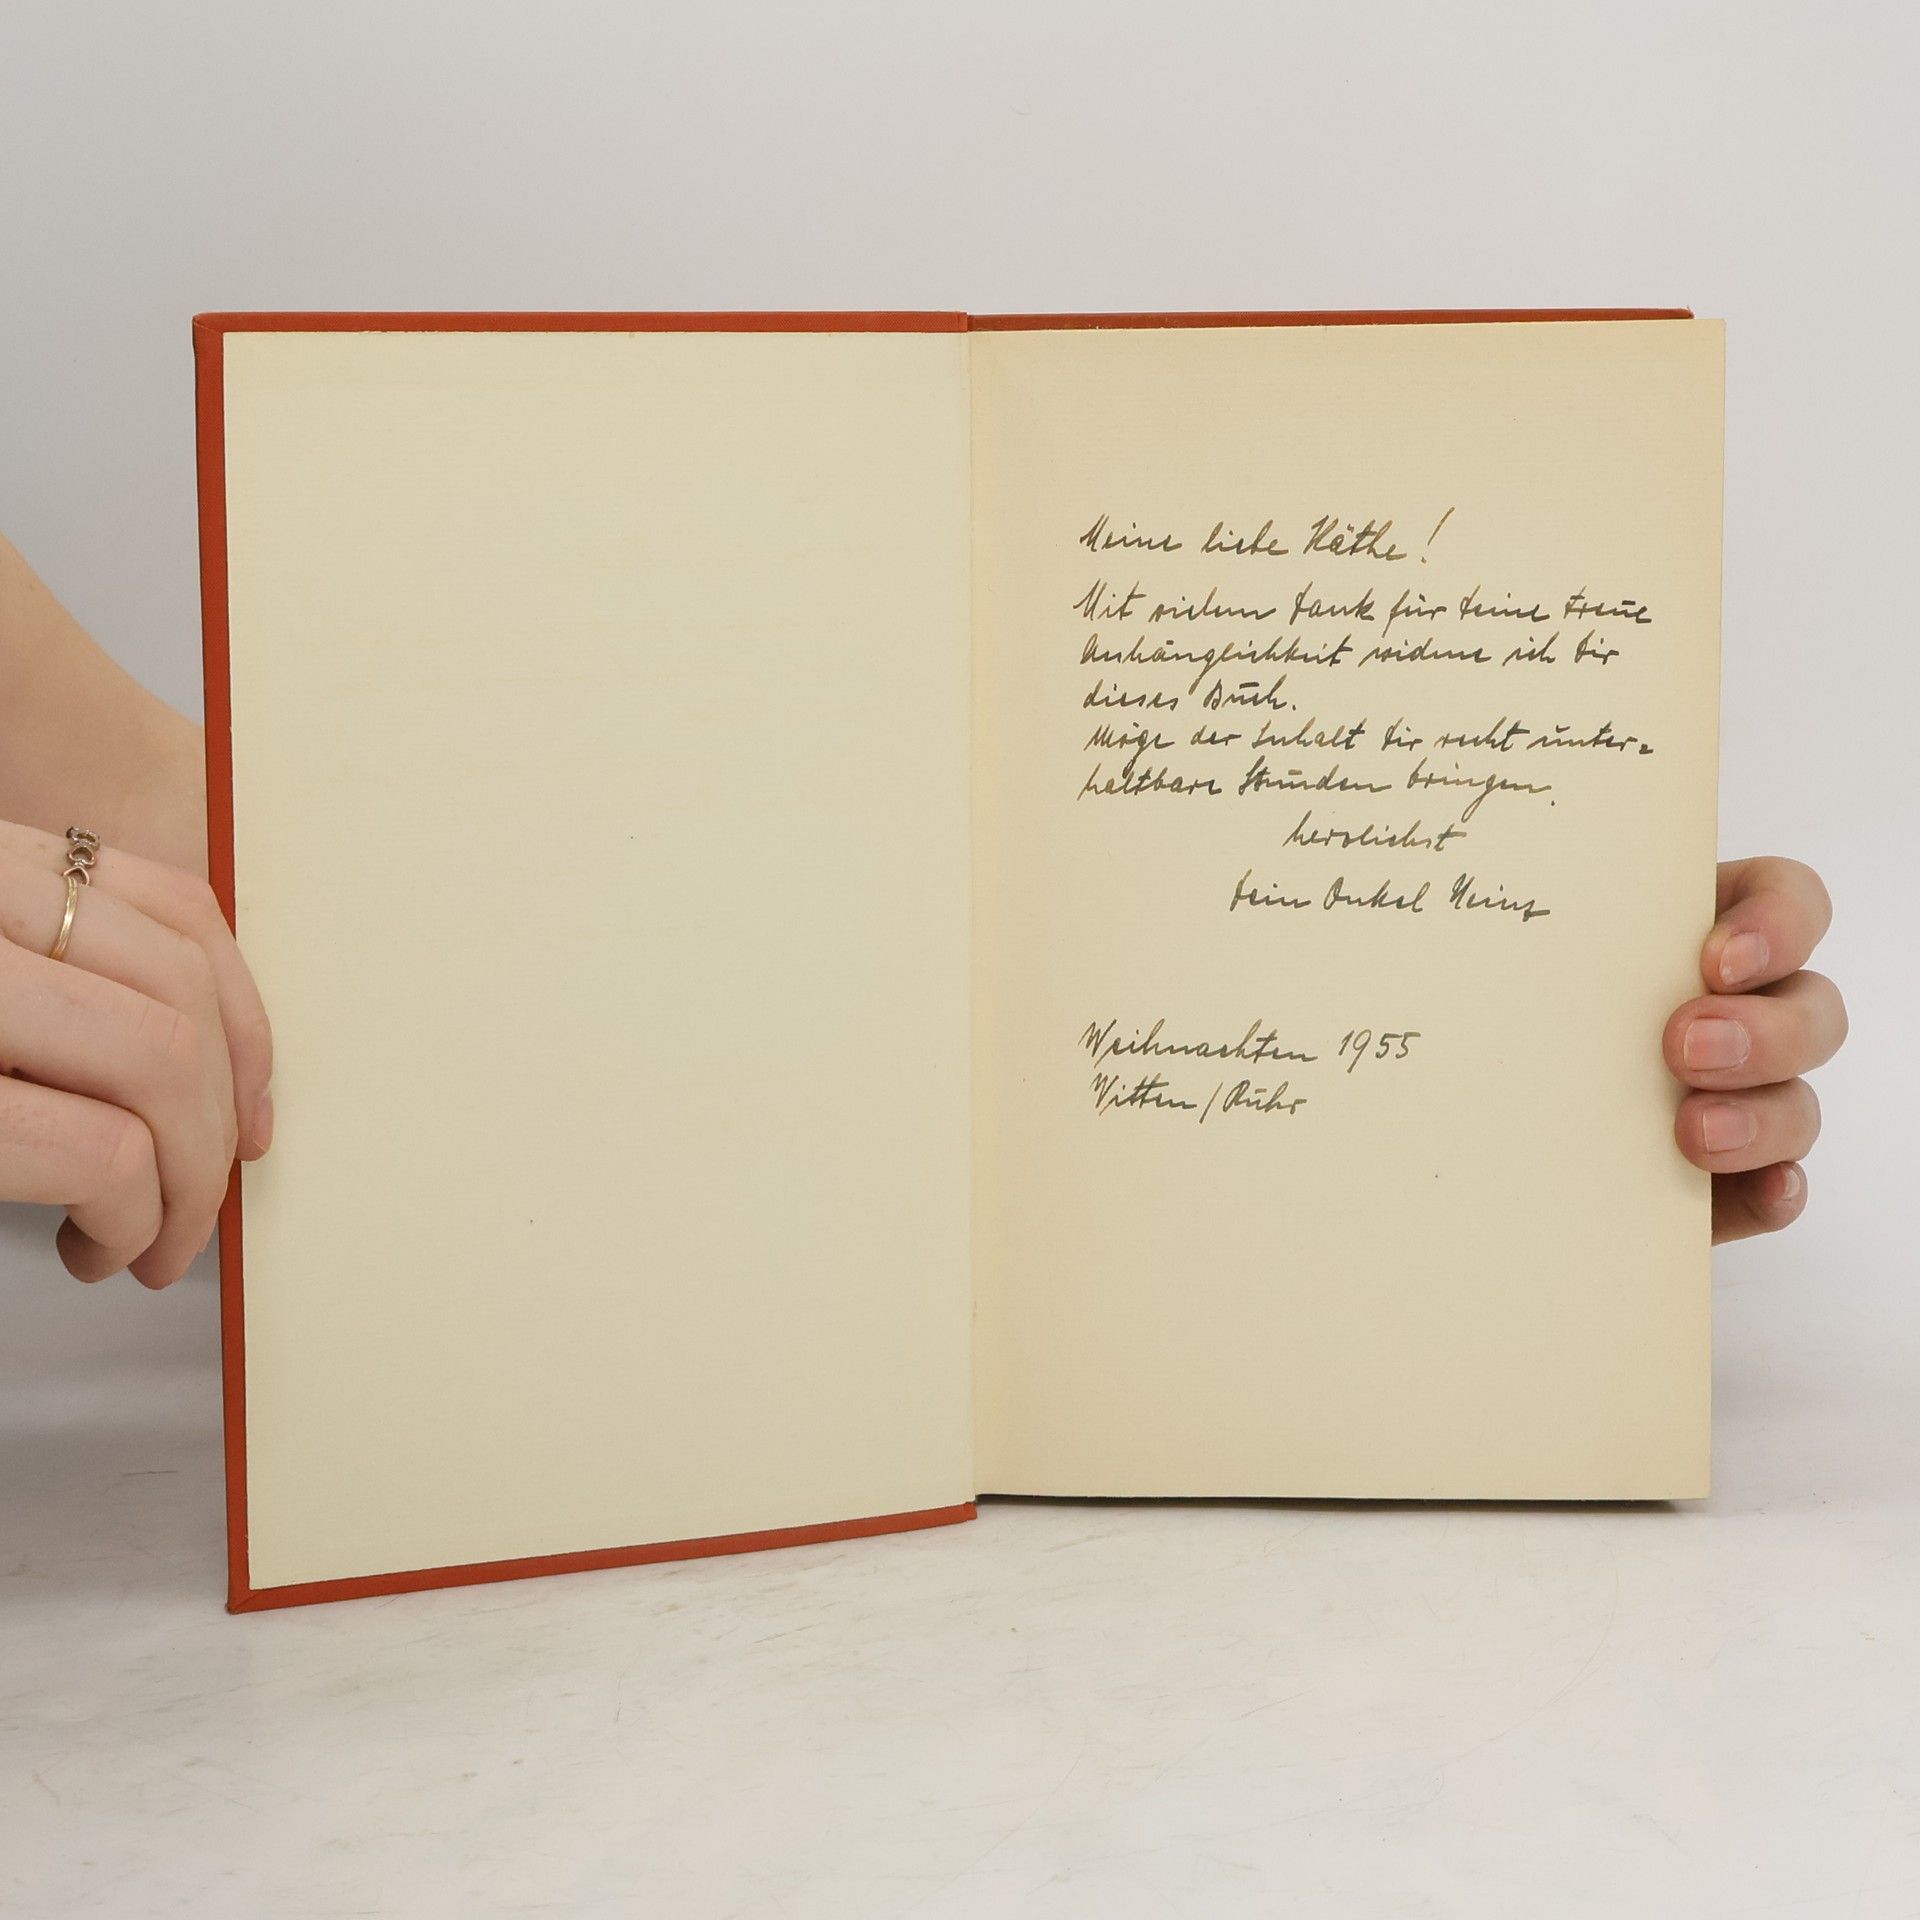 Meine liebe Käthe!
Mit vielem Dank für Deine treue
Anhänglichkeit widme ich Dir
dieses Buch.
Möge der Inhalt Dir recht unter=
haltbare Stunden bringen.
herzlichst
Dein Onkel Heinz
Weihnachten 1955
Witten / Ruhr